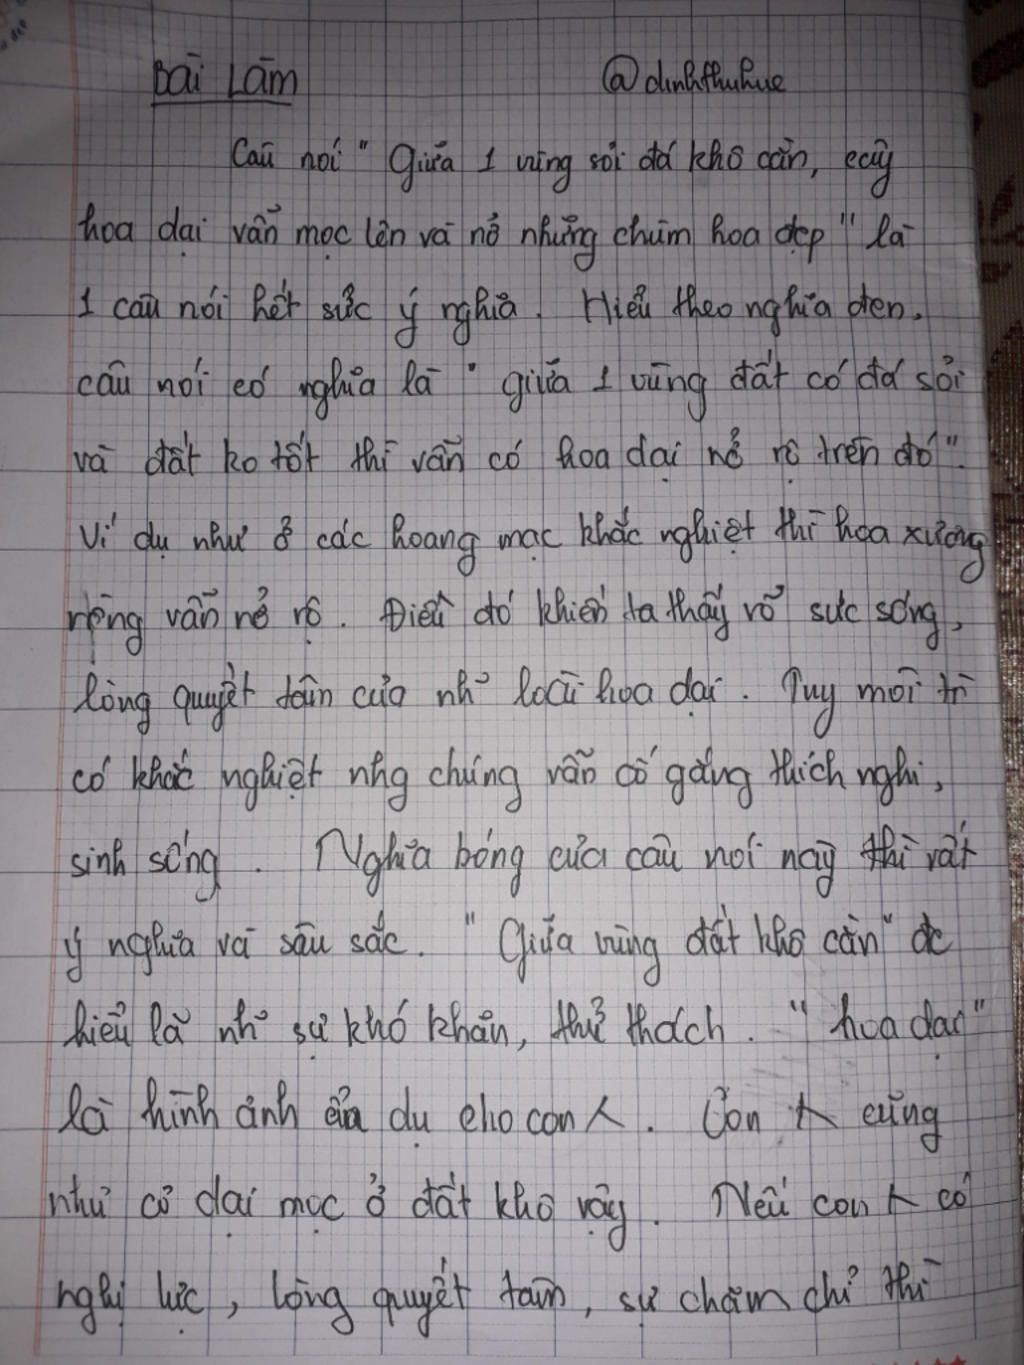 Bài Làm @dinhthuhue
Câu nói " Giữa 1 vùng sỏi đá khô cằn, cây
hoa dại vẫn mọc lên và nở những chùm hoa đẹp " là
1 câu nói hết sức ý nghĩa. Hiểu theo nghĩa đen,
câu nói có nghĩa là " giữa 1 vùng đất có đá sỏi
và đất ko tốt thì vẫn có hoa dại nở rộ trên đó".
Ví dụ như ở các hoang mạc khắc nghiệt thì hoa xương
rồng vẫn nở rộ. Điều đó khiến ta thấy rõ sức sống,
lòng quyết tâm của nh~ loài hoa dại. Tuy môi tr
có khắc nghiệt nhg chúng vẫn cố gắng thích nghi,
sinh sống. Nghĩa bóng của câu nói này thì rất
ý nghĩa và sâu sắc. "Giữa vùng đất khô cằn" đc
hiểu là nh~ sự khó khăn, thử thách. " hoa dại"
là hình ảnh ẩn dụ cho con ng. Con ng cũng
như cỏ dại mọc ở đất khô vậy. Nếu con ng có
nghị lực, lòng quyết tâm, sự chăm chỉ thì